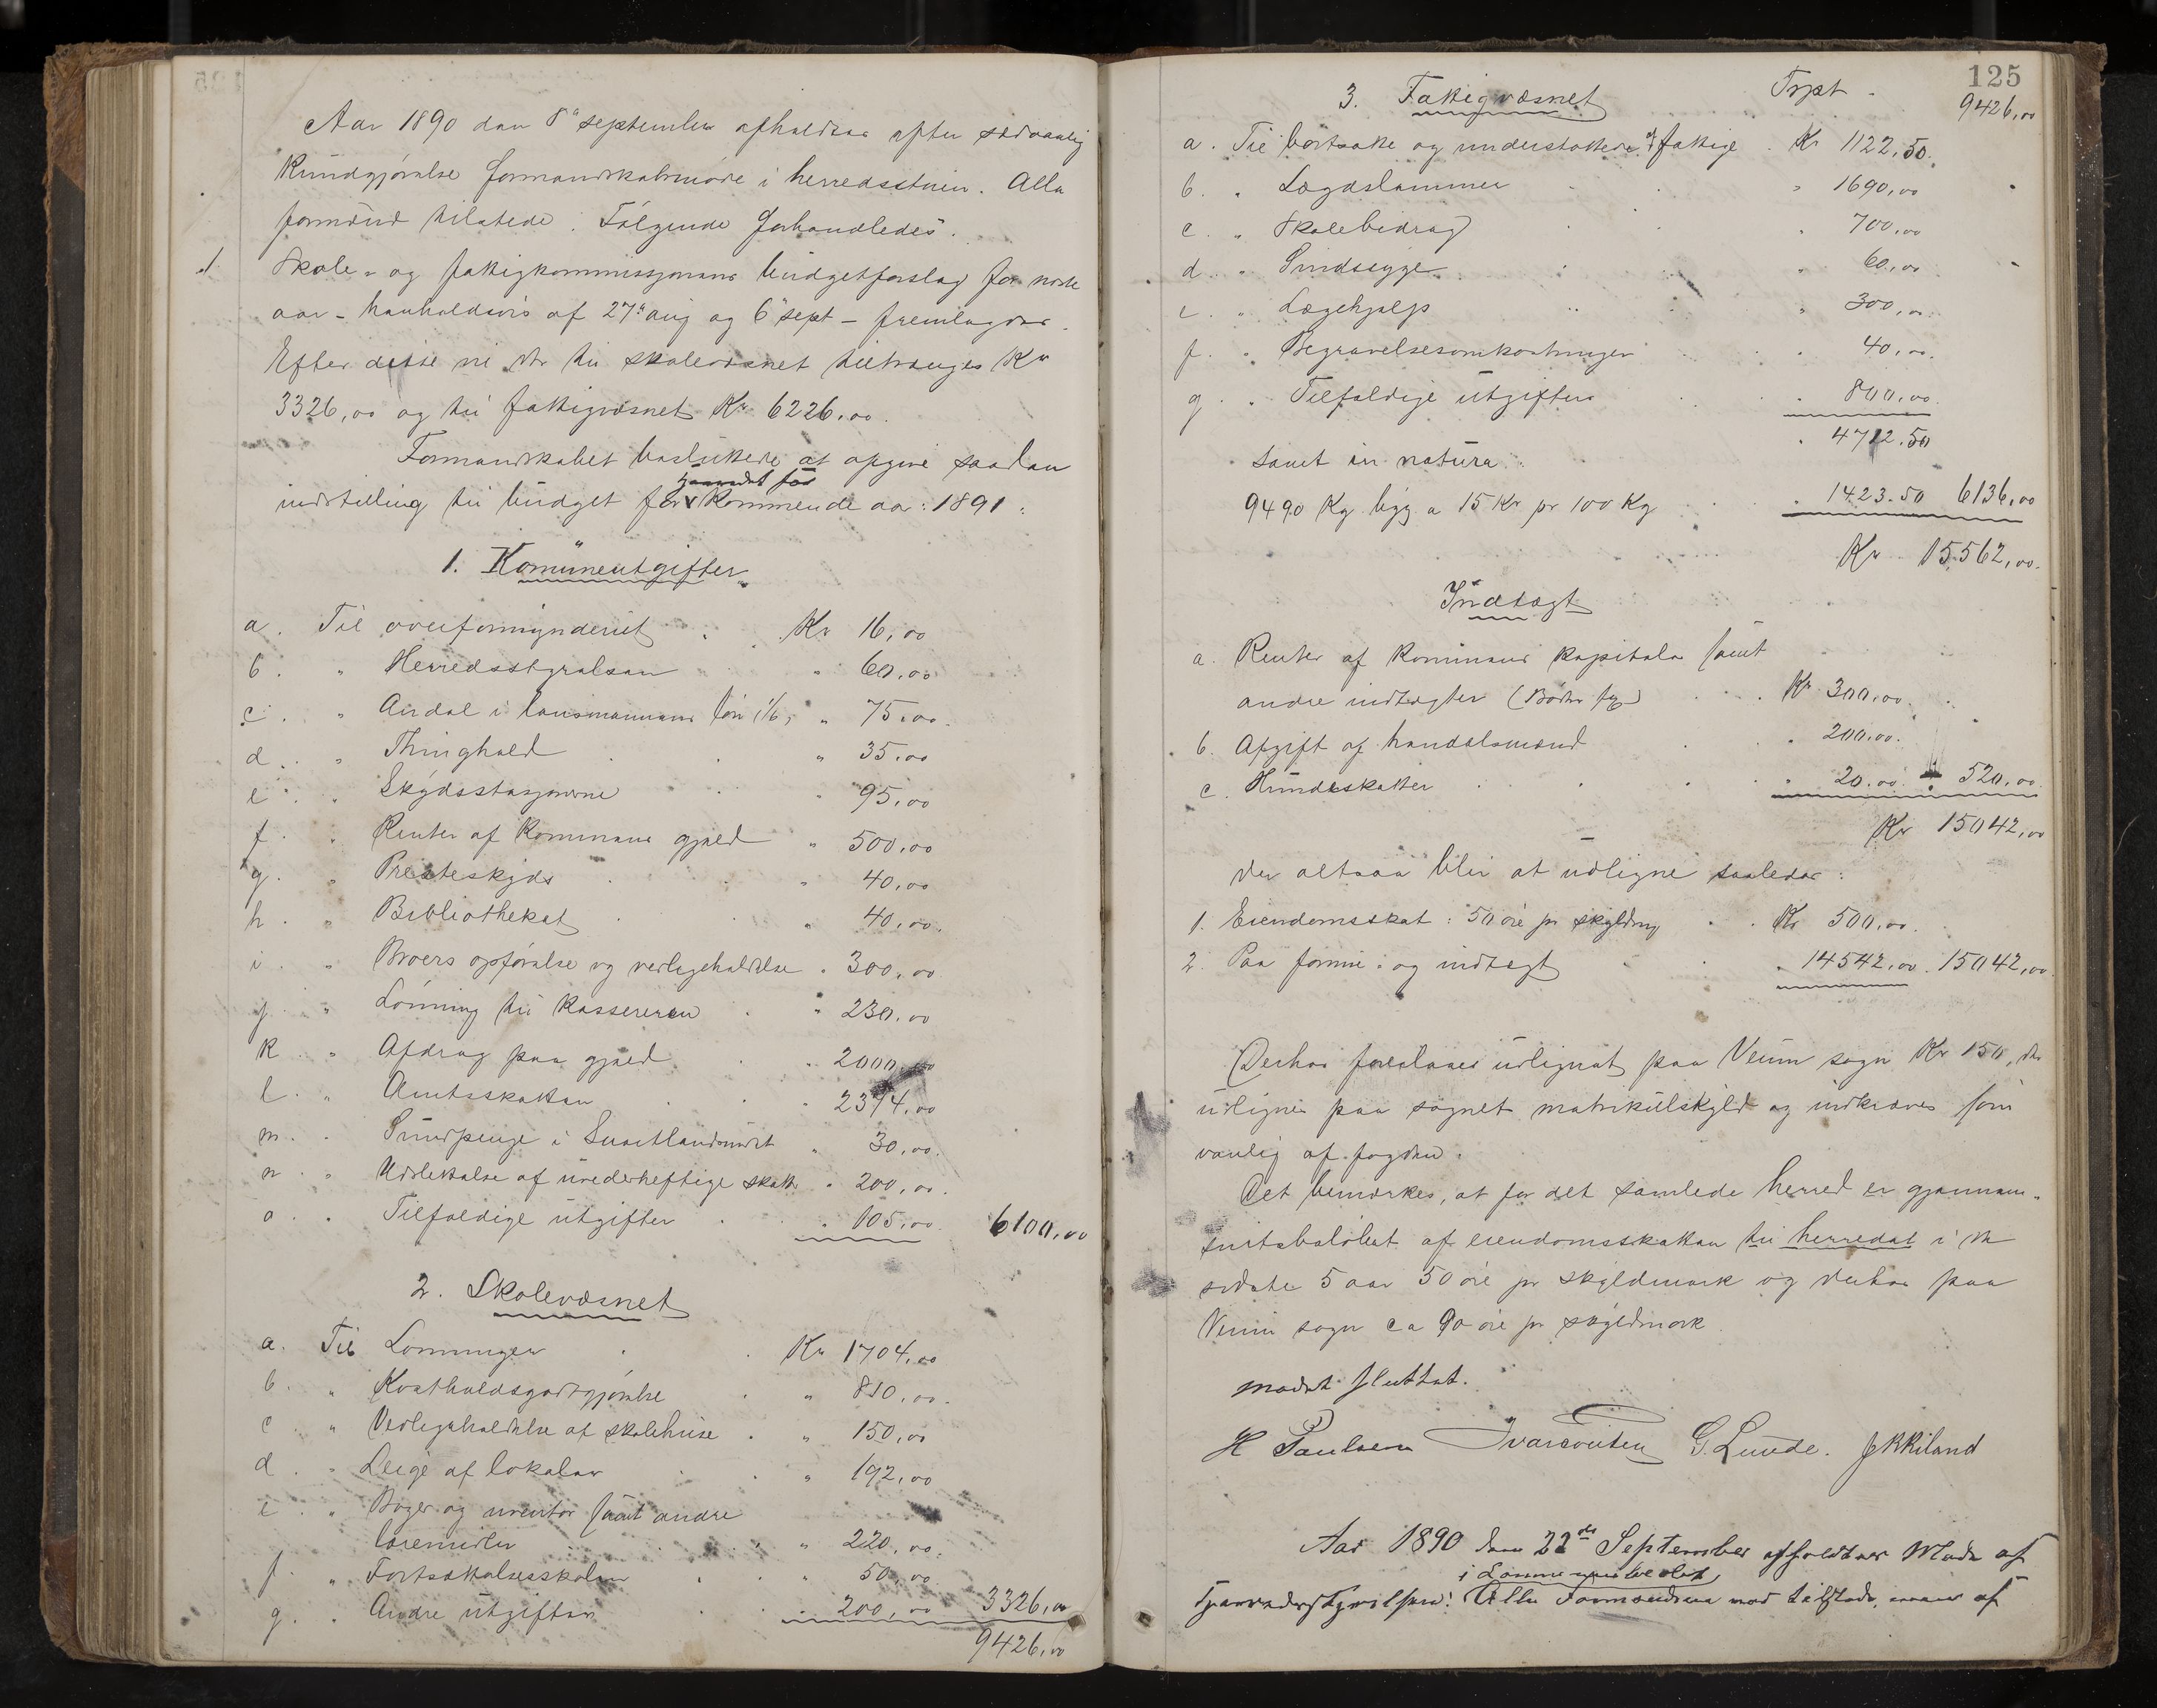 Aar 1890 den 8de september afholdtes efter sedvanlig
kundgjørelse formandskabsmøde i herredsstuen. Alle
formænd tilstede. Følgende forhandledes:
1. Skole- og fattigkommissjonens budgetforslag for næste
aar - henholdsvis af 27de aug og 6te sept - fremlagdes.
Efter disse vil der til skolevæsnet tiltrænges Kr
3326,00 og til fattigvæsnet Kr 6226,00.
Formandskabet besluttede at opgive saadan
indstilling til budget for herredet for kommende aar: 1891:
1. Komüneutgifter
a. Til overformynderiet Kr 16,00
b. " Herredsstyrelsen " 60,00
c. " Andel i lensmannens løn " 75,00
d. " Thinghold " 35,00
e. " Skydsstasjonerne " 95,00
f. " Renter af kommunens gjæld " 500,00
g. " Presteskyds " 40,00
h. " Bibliotheket " 40,00
i. " Broers opførelse og vedligeholdelse " 300,00
j. " Lønning til kassereren " 230,00
k. " Afdrag paa gjæld " 2000,00
l. " Amtsskatten " 2374,00
m. " Sundpenge i " 30,00
n. " Udslettelse af uvederheftige skatter " 200,00
o. " Tilfældige utgifter " 105,00 6100,00
2. Skolevæsnet
a. Til Lønninger Kr 1704,00
b. " Kostholdsgodtgjørelse " 810,00
c. " Vedligeholdelse af skolehuse " 150,00
d. " Leige af lokaler " 192,00
e. " Bøger og inventar samt andre
læremidler " 220,00
f. " Fortsættelsesskolen " 50,00
g. " Andre utgifter " 200,00 3326,00
9426,00
125
3. Fattigvæsnet Trpt. 9426,00
a. Til bortsatte og understøttede fattige Kr 1122,50
b. " Lægdslemmer " 1690,00
c. " Skolebidrag " 700,00
d. " Sindssyge " 60,00
e. " Lægehjælp " 300,00
f. " Begravelsesomkostninger " 40,00
g. " Tilfældige utgifter " 800,00
" 4712.50
samt in natura:
9490 Kg byg a 15 Kr pr 100 Kg " 1423.50 6136,00
Kr 15562,00
Indtægt
a. Renter af kommunens kapitaler samt
andre indtægter (Bøder fx) Kr 300,00
b. Afgift af handelsmænd " 200,00
c. Hundeskatter " 20.00 520,00
Kr 15042,00
der altsaa blir at udligne saaledes:
1. Eiendomsskat: 50 øre pr skyldmrk Kr 500,00
2. Paa formue- og indtægt " 14542,00 15042,00
Derhos foreslaaes udlignet paa Veum sogn Kr 150, der
udlignes paa sognets matrikulskyld og indkræves som
vanlig af fogden.
Det bemærkes, at for det samlede herred er gjennem-
snitsbeløbet af eiendomsskatten til herredet i de
sidste 5 aar 50 øre pr skyldmark og derhos paa
Veum sogn ca 90 øre pr skyldmark
mødet sluttet.
H Paulsen G. Lunde. JKKiland
Aar 1890 den 22de September afholdtes Møde af
Alle Formændene mød tilstede, af